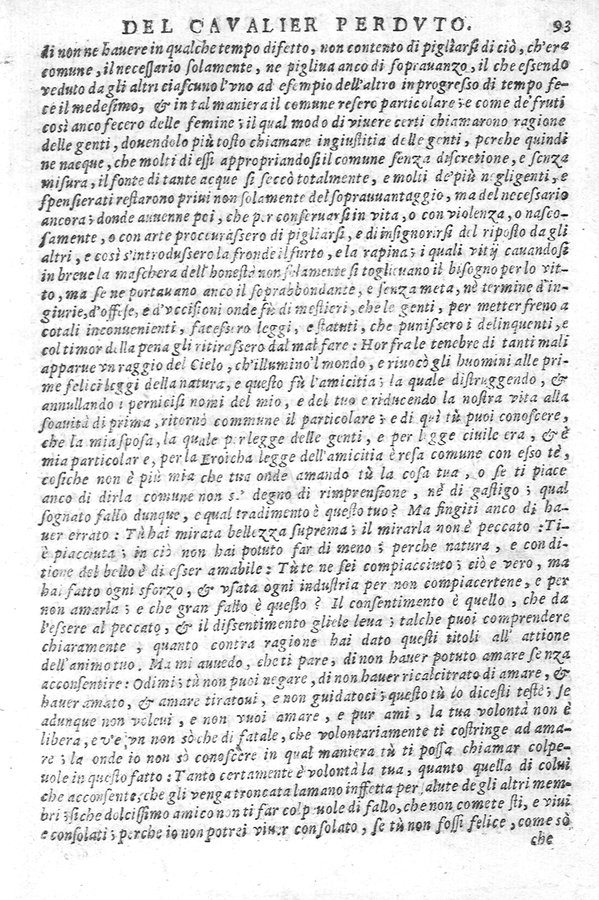 DEL CAVALIER PERDVTO. 93
di non ne hauere in qualche tempo difetto, non contento di pigliarsi di ciò, ch'era
comune, il necessario solamente, ne pigliua anco di soprauanzo, il che essendo
veduto da gli altri ciascuno l'vno ad esempio dell'altro in progresso di tempo fe-
ce il medesimo, & in tal maniera il comune resero particolare; e come de' fruti
così anco fecero delle femine; il qual modo di viuere certi chiamarono ragione
delle genti, douendolo più tosto chiamare ingiustitia delle genti, perche quindi
ne nacque, che molti di essi appropriandosi il comune senza descretione, e senza
misura, il fonte di tante acque si seccò totalmente, e molti de' più negligenti, e
spensierati restarono priui non solamente del soprauuantaggio, ma del necessario
ancora; donde auuenne poi, che per conseruarsi in vita, o con violenza, o nasco-
samente, o con arte procurassero di pigliarsi, e di insignorirsi del riposto da gli
altri, e così s'introdussero la fronde il furto, e la rapina; i quali vitij cauandosi
in breue la maschera dell'honestà non solamente si toglieuano il bisogno per lo vit-
to, ma se ne portauano anco il soprabbondante, e senza meta, nè termine d'in-
giurie, d'offese, e d'vccisioni onde fù di mestieri, che le genti, per metter freno a
cotali inconuenienti, facessero leggi, e statuti, che punissero i delinquenti, e
col timor della pena gli ritirassero dal mal fare: Hor fra le tenebre di tanti mali
apparue vn raggio del Cielo, ch'illuminò l mondo, e riuocò gli huomini alle pri-
me felici leggi della natura, e questo fù l'amicitia; la quale distruggendo, &
annullando i perniciosi nomi del mio, e del tuo e riducendo la nostra vita alla
soauità di prima, ritornò commune il particolare; e di quì tù puoi conoscere,
che la mia sposa, la quale per legge delle genti, e per legge ciuile era, & è
mia particolare, per la Eroicha legge dell'amicitia è resa comune con esso tè,
cosiche non è più mia che tua onde amando tù la cosa tua, o se ti piace
anco di dirla comune non s' degno di rimprensione, nè di gastigo; qual
sognato fallo dunque, e qual tradimento è questo tuo? Ma fingiti anco di ha-
uer errato: Tù hai mirata bellezza suprema; il mirarla non è peccato: Ti-
è piacciuta; in ciò non hai potuto far di meno; perche natura, e con di-
tione del bello è di esser amabile: Tù te ne sei compiacciuto; ciò e vero, ma
hai fatto ogni sforzo, & vsata ogni industria per non compiacertene, e per
non amarla; e che gran fallo è questo? Il consentimento è quello, che da
l'essere al peccato, & il dissentimento gliele leua; talche puoi comprendere
chiaramente, quanto contra ragione hai dato questi titoli all' attione
dell'animo tuo. Ma mi auuedo, che ti pare, di non hauer potuto amare senza
acconsentire: Odimi; tù non puoi negare, di non hauer ricalcitrato di amare, &
hauer amato, & amare tiratoui, e non guidatoci; questo tù lo dicesti testè; se
adunque non voleui, e non vuoi amare, e pur ami, la tua volontà non è
libera, e v'è vn non sò che di fatale, che volontariamente ti costringe ad ama-
re; la onde io non sò conoscere in qual maniera tù ti possa chiamar colpe-
uole in questo fatto: Tanto certamente è volontà la tua, quanto quella di colui
che acconsente, che gli venga troncata la mano inffetta per salute de gli altri mem-
bri; siche dolcissimo amico non ti far colpeuole di fallo, che non comete sti, e viui
e consolati; perche io non potrei viuer consolato, se tù non fossi felice, come sò
che